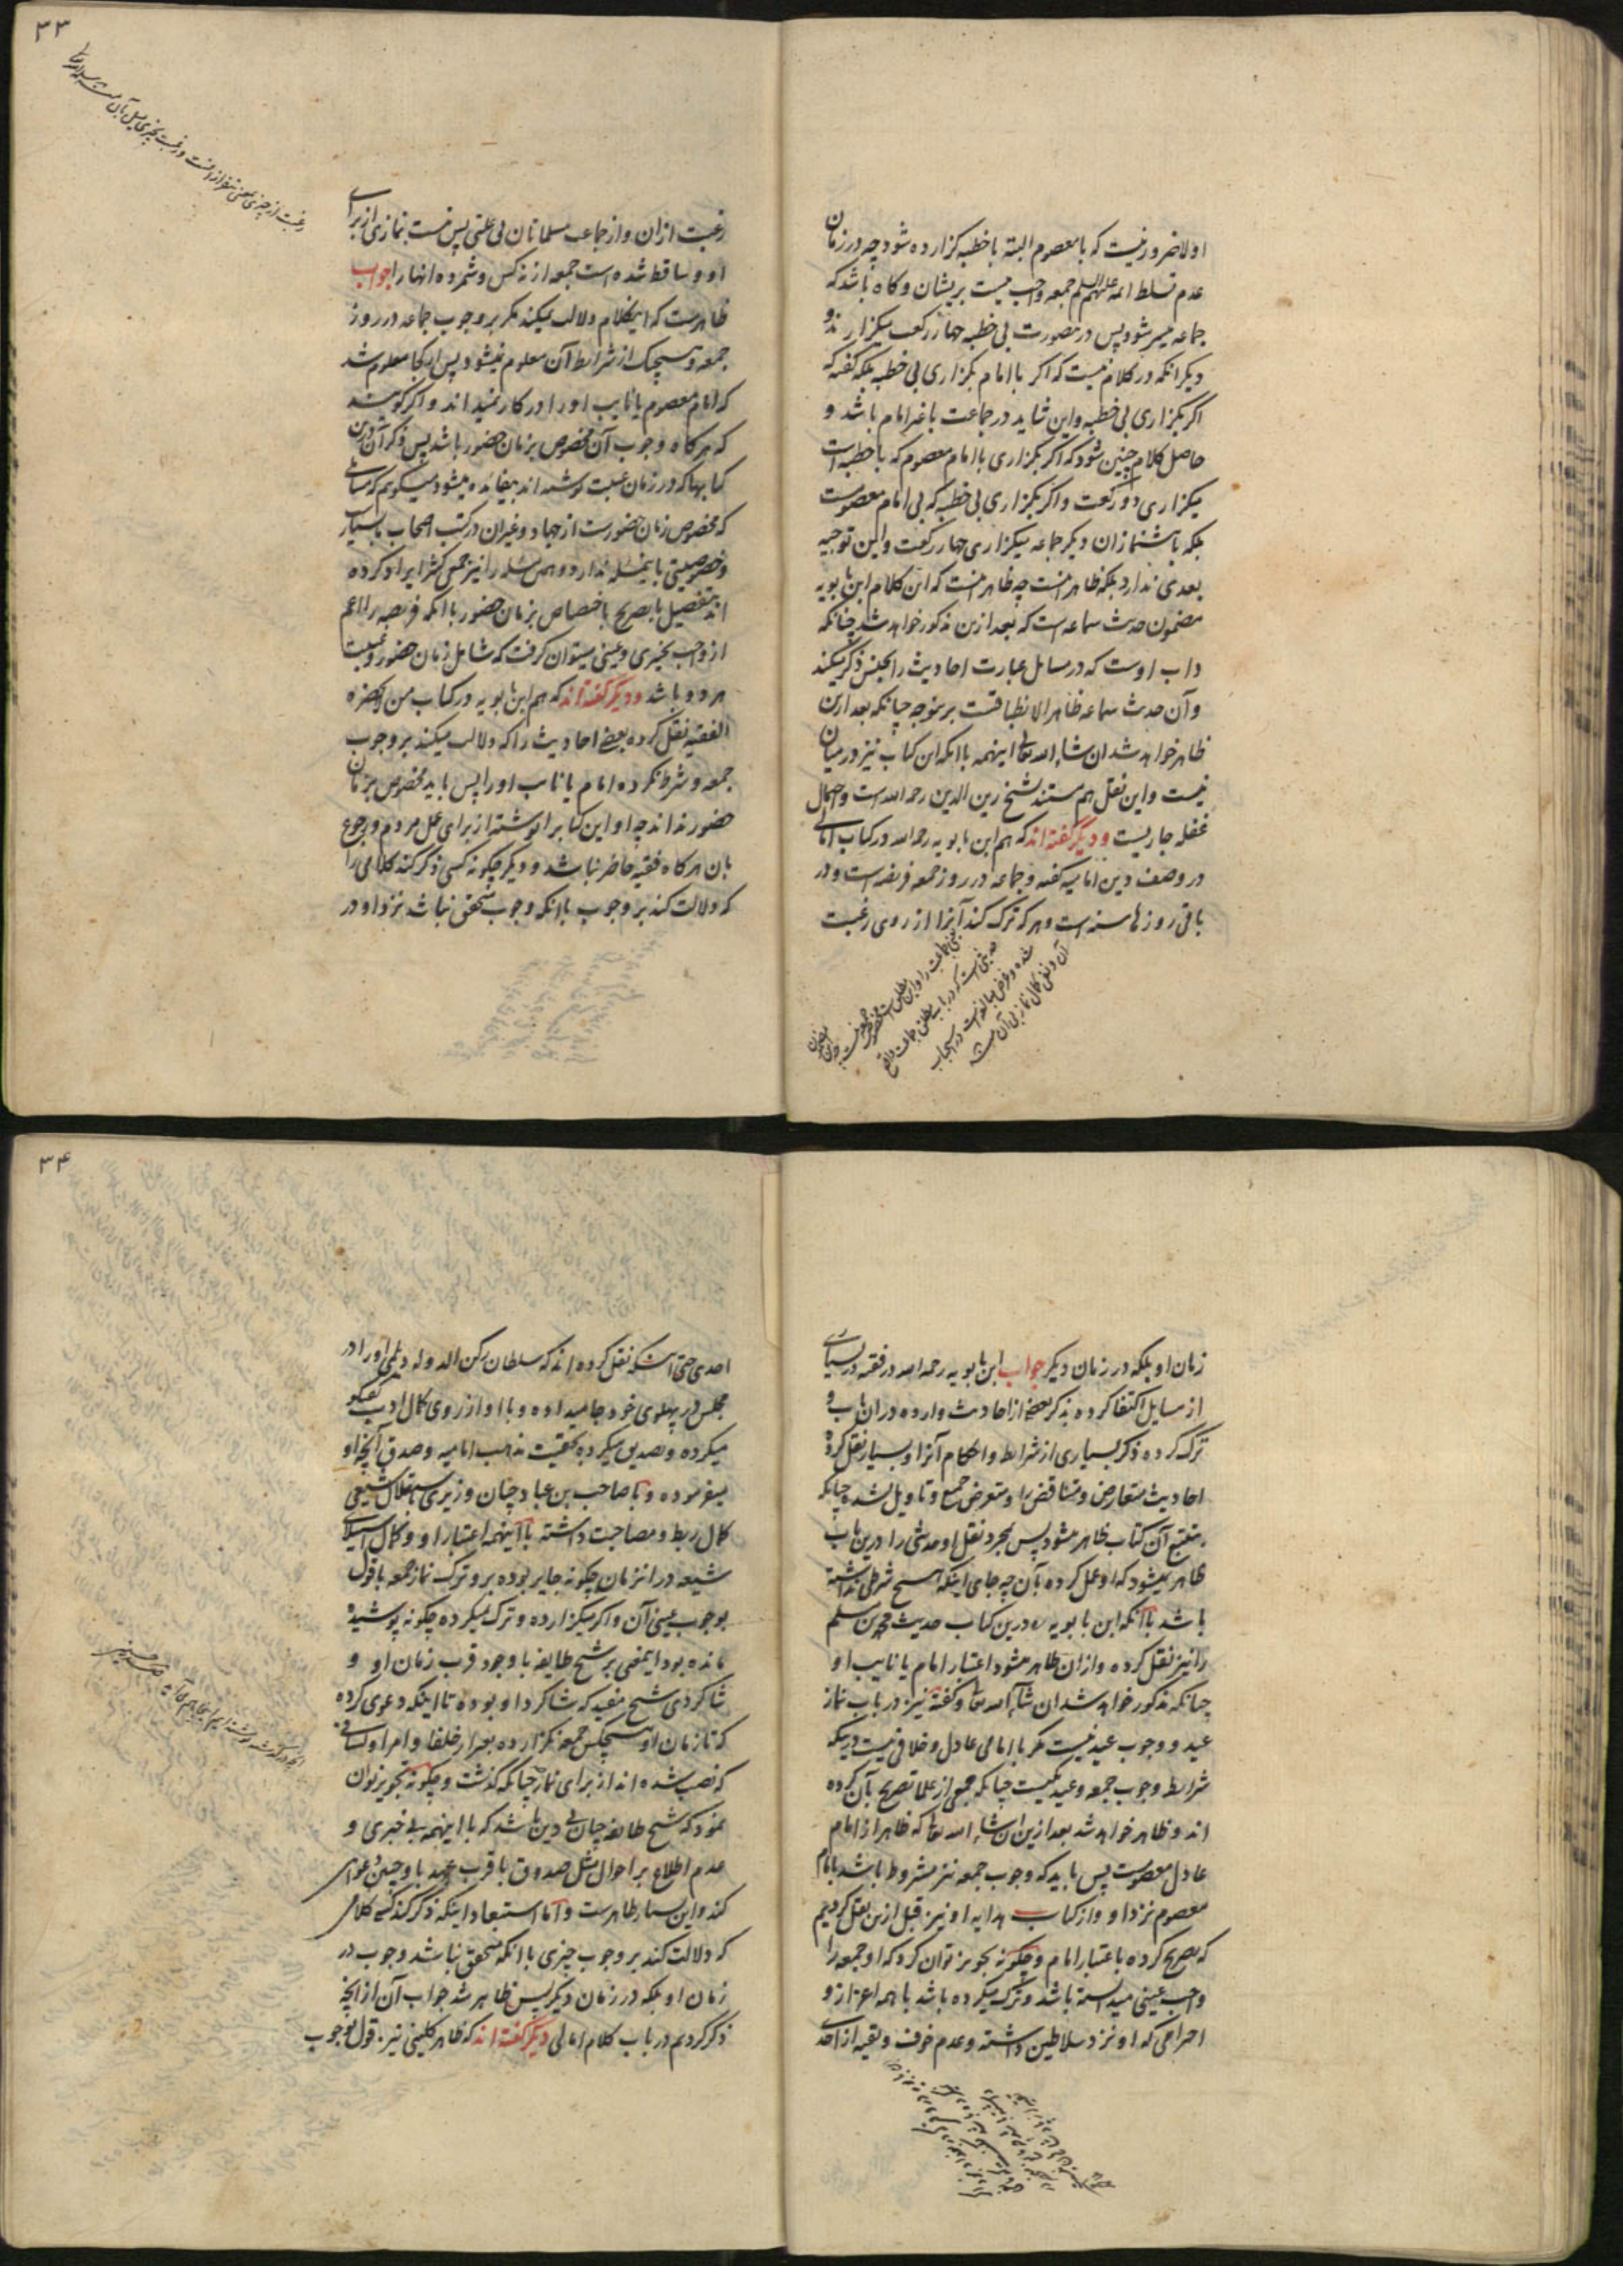 اولا ضرور نیست که با معصوم البته با خطبه گزارده شود چه در زمان
عدم تسلط ائمه علیهم السلام جمعه واجب نیست بریشان و گاه باشد که
جماعه میسر شود پس درینصورت بی خطبه چهار رکعت میگزارند و
دیگر آنکه در کلام نیست که اگر با امام بگزاری بی خطبه بلکه گفته که
اگر بگزاری بی خطبه و این شاید در جماعت با غیر امام باشد و
حاصل کلام چنین شود که اگر بگزاری با امام معصوم که با خطبه است
میگزاری دو رکعت و اگر بگزاری بی خطبه که بی امام معصومست
بلکه با پیشنمازان دیگر جماعه میگزاری چهار رکعت و این توجیه
بعدی ندارد بلکه ظاهر منست چه ظاهر منست که این کلام ابن بابویه
مضمون حدیث سماعه است که بعد ازین مذکور خواهد شد چنانکه
داب اوست که در مسایل عبارت احادیث را بجنس ذکر میکند
و آن حدیث سماعه ظاهر الانطباقست برینوجه چنانکه بعد ازین
ظاهر خواهد شد ان شاء الله تعالی اینهمه با آنکه این کتاب نیز در میان
نیست و این نقل هم مستند بشیخ زین الدین رحمه الله است و احتمال
غفله جاریست و دیگر گفته اند که هم ابن بابویه رحمه الله در کتاب امالی
در وصف دین امامیه گفته و جماعه در روز جمعه فریضه است و در
باقی روزها سنه است و هر که ترک کند آنرا از روی رغبت
۳۳
رغبت ازان و از جماعت مسلمانان بی علتی پس نیست نمازی از برای
او و ساقط شده است جمعه از نه کس و شمرده انها را جواب
ظاهرست که اینکلام دلالت نمیکند مگر بر وجوب جماعه در روز
جمعه و هیچیک از شرایط آن معلوم نمیشود پس از کجا معلوم شد
که امام معصوم یا نایب او را در کار نمیداند و اگر گویند
که هرگاه وجوب آن مخصوص بزمان حضور باشد پس ذکر آن درین
کتابها که در زمان غیبت نوشته اند بیفایده میشود میگویم که مسائلی
که مخصوص زمان حضورست از جهاد و غیران در کتب اصحاب بسیار
و خصوصیتی باینمسئله ندارد و همین مسئله را نیز جمعی کثیر ایراد کرده
اند بتفصیل با تصریح باختصاص بزمان حضور با آنکه فریضه را اعم
از واجب تخییری و عینی میتوان گرفت که شامل زمان حضور و غیبت
هر دو باشد و دیگر گفته اند که هم ابن بابویه در کتاب من لایحضره
الفقیه نقل کرده بعضی احادیث را که دلالت میکند بر وجوب
جمعه و شرط نکرده امام یا نایب او را پس باید مخصوص بزمان
حضور نداند چه او این کتاب را نوشته از برای عمل مردم و رجوع
بان هر گاه فقیه حاضر نباشد و دیگر چگونه کسی ذکر کند کلامی را
که دلالت کند بر وجوب با آنکه وجوب متحقق نباشد نزد او در
زمان او بلکه در زمان دیگر جواب ابن بابویه رحمه الله در فقیه در بسیاری
از مسایل اکتفا کرده بذکر بعضی از احادیث وارده دران باب و
ترک کرده ذکر بسیاری از شرایط و احکام آنرا و بسیار نقل کرده
احادیث متعارض و متناقض را و متعرض جمع و تاویل نشده چنانکه
بتتبع آن کتاب ظاهر میشود پس بمجرد نقل او حدیثی را درین باب
ظاهر نمیشود که او عمل کرده بآن چه جای اینکه هیچ شرطی نداشته
باشد با آنکه ابن بابویه در این کتاب حدیث محمد بن مسلم
را نیز نقل کرده و ازان ظاهر میشود اعتبار امام یا نایب او
چنانکه مذکور خواهد شد ان شاء الله تعالی و گفته نیز در باب نماز
عید و وجوب عید نیست مگر با امامی عادل و خلافی نیست در اینکه
شرایط وجوب جمعه و عید یکیست چنانکه جمعی از علما تصریح بآن کرده
اند و ظاهر خواهد شد بعد ازین ان شاء الله تعالی که ظاهر از امام
عادل معصومست پس باید که وجوب جمعه نیز مشروط باشد بامام
معصوم نزد او و از کتاب هدایه او نیز قبل ازین نقل کردیم
که تصریح کرده باعتبار امام و چگونه تجویز توان کرد که او جمعه را
واجب عینی میدانسته باشد و ترک میکرده باشد با همه اعزاز و
احترامی که او نزد سلاطین داشته و عدم خوف و تقیه از احدی
۳۴
احدی حتی اینکه نقل کرده اند که سلطان رکن الدوله دیلمی او را در
مجلس در پهلوی خود جا میداده و با او از روی کمال ادب گفتگو
میکرده و تصدیق میکرده بحقیقت مذهب امامیه و صدق آنچه او
میفرموده و با صاحب بن عباد چنان وزیری باستقلال شیعی
کمال ربط و مصاحبت داشته با اینهمه اعتبار او و کمال استیلای
شیعه در انزمان چگونه جایز بوده بر او ترک نماز جمعه با قول
بوجوب عینی آن و اگر میگزارده و ترک نمیکرده چگونه پوشیده
مانده بود اینمعنی بر شیخ طایفه با وجود قرب زمان او و
شاگردی شیخ مفید که شاگرد او بوده تا اینکه دعوی کرده
که تا زمان او هیچکس جمعه نگزارده بغیر از خلفا و امرا و کسانی
که نصب شده اند از برای نماز چنانکه گذشت و چگونه تجویز توان
نمود که شیخ طایفه چنان بی دین باشد که با اینهمه بی خبری و
عدم اطلاع بر احوال مثل صدوق با قرب عهد باو چنین دعوای
کند و این بسیار ظاهرست و اما استبعاد اینکه ذکر کند کسی کلامی
که دلالت کند بر وجوب چیزی با آنکه متحقق نباشد وجوب در
زمان او بلکه در زمان دیگر پس ظاهر شد جواب آن از آنچه
ذکر کردیم در باب کلام امالی دیگر گفته اند که ظاهر کلینی نیز قول بوجوب